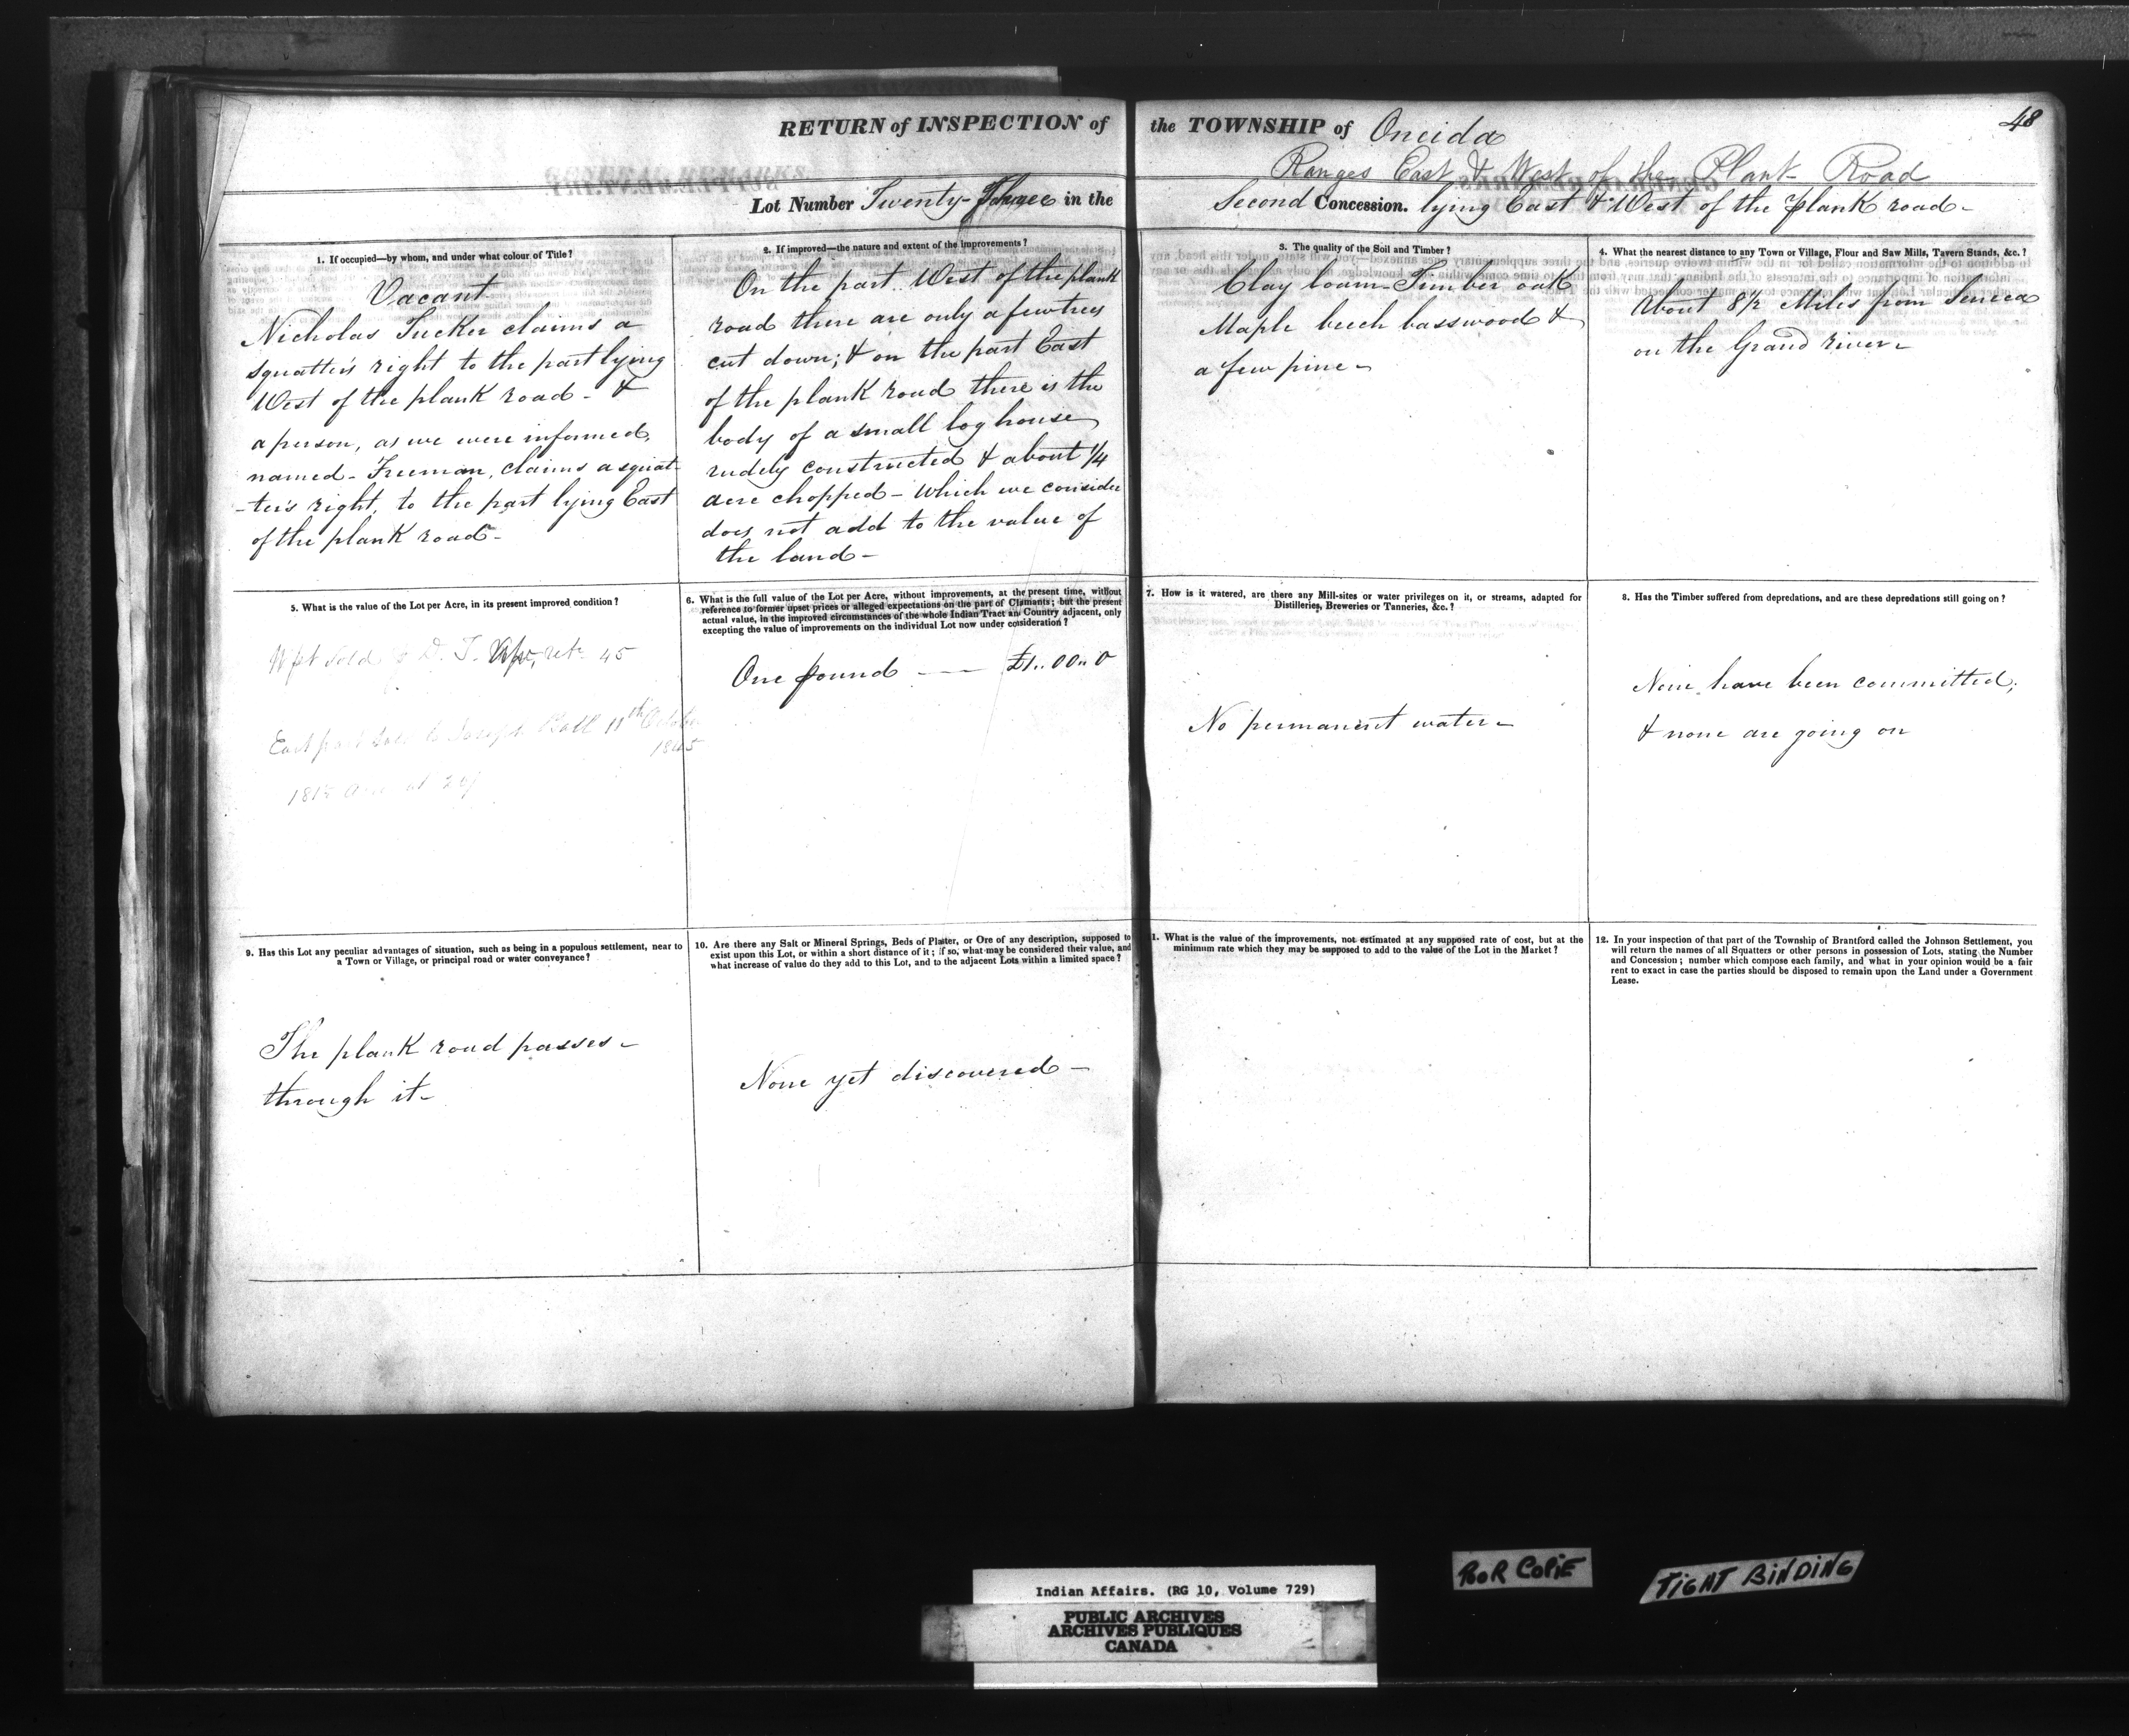 48
RETURN of INSPECTION of the TOWNSHIP of Oneida
Ranges East & West of the Plank Road
Lot Number Twenty-Three in the Second Concession. lying East & West of the plank road-
1. If occupied—by whom, and under what colour of Title?
Vacant
Nicholas Tucker claims a
squatter's right to the part lying
West of the plank road - &
a person, as we were informed,
named - Freeman, claims a squat-
-ter's right, to the part lying East
of the plank road-
2. If improved—the nature and extent of the improvements?
On the part West of the plank
road there are only a few trees
cut down; & on the part East
of the plank road there is the
body of a small log house
rudely constructed & about 1/4
acre chopped - which we consider
does not add to the value of
the land -
3. The quality of the Soil and Timber?
Clay loam - Timber oak
Maple beech basswood &
a few pine -
4. What the nearest distance to any Town or Village, Flour and Saw Mills, Tavern Stands, &c.?
About 8 1/2 Miles from Seneca
on the Grand river -
5. What is the value of the Lot per Acre, in its present improved condition?
W pt Sold D. T. 45
East part sold to Joseph Ball 11th October
1845
6. What is the full value of the Lot per Acre, without improvements, at the present time, without
reference to former upset prices or alleged expectations on the part of Clamants; but the present
actual value, in the improved circumstances of the whole Indian Tract and Country adjacent, only
excepting the value of improvements on the individual Lot now under cosideration?
One pound —— £1..00..0
7. How is it watered, are there any Mill-sites or water privileges on it, or streams, adapted for
Distilleries, Breweries or Tanneries, &c.?
No permanent water -
8. Has the Timber suffered from depredations, and are these depredations still going on?
None have been committed;
& none are going on
9. Has this Lot any peculiar advantages of situation, such as being in a populous settlement, near to
a Town or Village, or principal road or water conveyance?
The plank road passes -
through it -
10. Are there any Salt or Mineral Springs, Beds of Plaster, or Ore of any description, supposed to
exist upon this Lot, or within a short distance of it; if so, what may be considered their value, and
what increase of value do they add to this Lot, and to the adjacent Lots within a limited space?
None yet discovered -
1. What is the value of the improvements, not estimated at any supposed rate of cost, but at the
minimum rate which they may be supposed to add to the value of the Lot in the Market?
12. In your inspection of that part of the Township of Brantford called the Johnson Settlement, you
will return the names of all Squatters or other persons in possession of Lots, stating the Number
and Concession; number which compose each family, and what in your opinion would be a fair
rent to exact in case the parties should be disposed to remain upon the Land under a Government
Lease.
POOR COPIE
TIGHT BINDING
Indian Affairs. (RG 10, Volume 729)
PUBLIC ARCHIVES
ARCHIVES PUBLIQUES
CANADA